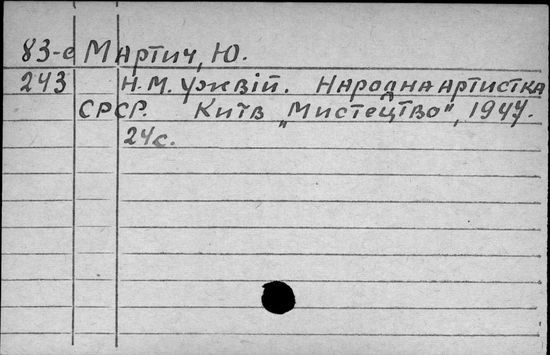 83-е Мартич, Ю.
243 Н. М. Ужвій. Народна артистка
СРСР. Київ „Мистецтво", 1947.
24 с.